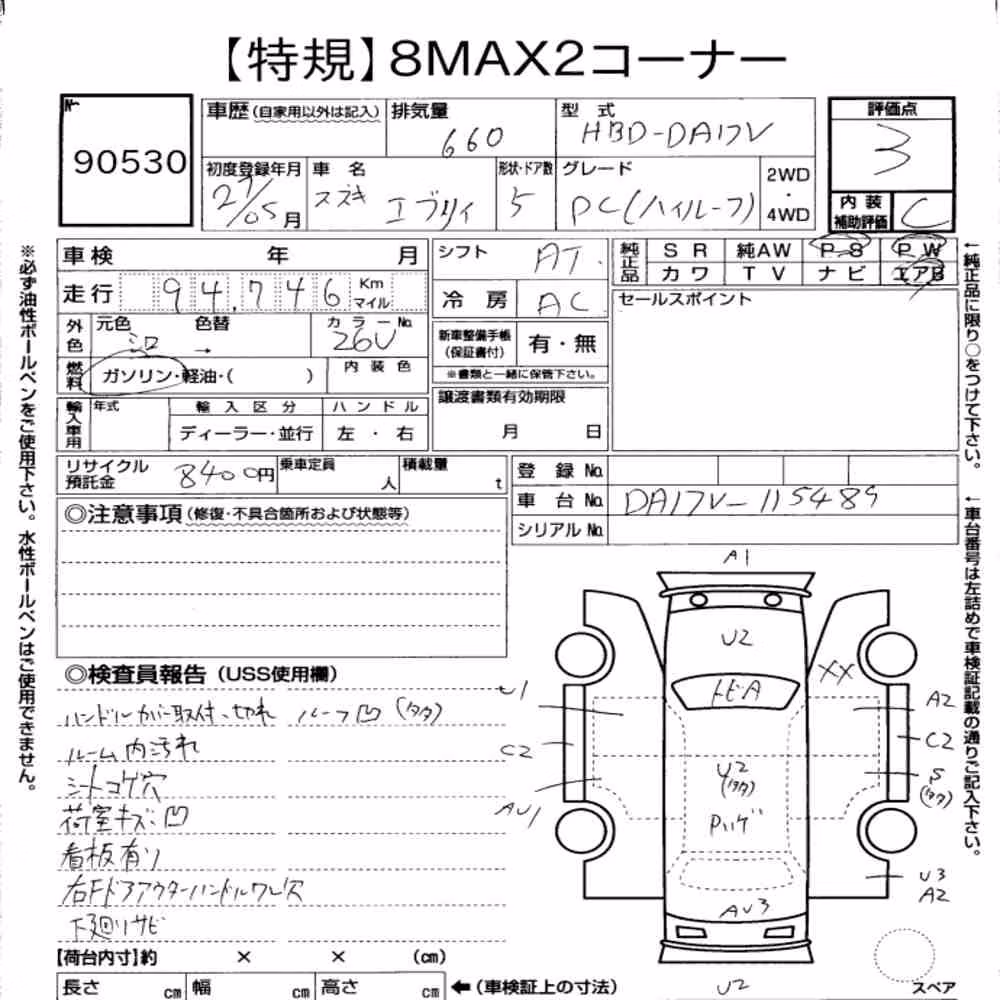 【特規】8MAX2コーナー
№
90530
車歴(自家用以外は記入)
排気量
660
型 式
HBD-DA17V
評価点
3
初度登録年月
27/05月
車 名
スズキ エブリイ
形状・ドア数
5
グレード
PC(ハイルーフ)
2WD
・
4WD
内 装
補助評価
C
車検 年 月
シフト
AT.
純正品
S R 純AW P S P W
カワ T V ナビ エアB
走行 94,746 Km
マイル
冷 房
AC
セールスポイント
外色
元色 色替
シロ →
カラーNo.
26U
新車整備手帳
(保証書付)
有・無
※書類と一緒に保管下さい。
燃料
ガソリン・軽油・( )
内 装 色
輸入車用
年式
輸 入 区 分
ハ ン ド ル
ディーラー・並行
左 ・ 右
譲渡書類有効期限
月 日
リサイクル
預託金
8400円
乗車定員
人
積載量
t
登 録 No.
車 台 No.
DA17V-115489
シリアル No.
◎注意事項(修復・不具合箇所および状態等)
◎検査員報告(USS使用欄)
ハンドルカバー取付、切れ ルーフ凹(タタ)
ルーム内汚れ
シートコゲ穴
荷室キズ・凹
看板有り
右Fドアアウターハンドルワレ欠
下廻りサビ
A1
U2
トビA
XX
U1
C2
AU1
A2
C2
S
(タタ)
U2
(タタ)
Pハゲ
AU3
U3
A2
U2
スペア
【荷台内寸】約 × × (cm)
長さ cm 幅 cm 高さ cm ←(車検証上の寸法)
※必ず油性ボールペンをご使用下さい。水性ボールペンはご使用できません。
←純正品に限り○をつけて下さい。
←車台番号は左詰めで車検証記載の通りご記入下さい。